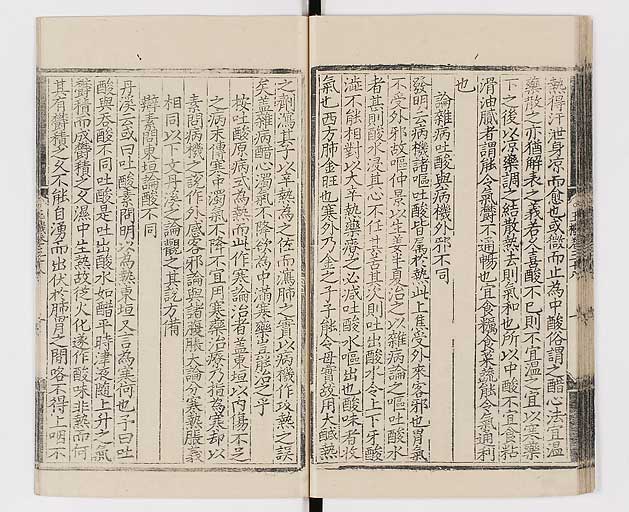 熱得汗泄身凉而愈也或微而止為中酸俗謂之醋心法宜温
藥散之亦猶解表之義若久喜酸不已則不宜温之宜以寒藥
下之後以凉藥調之結散熱去則氣和也所以中酸不宜食粘
滑油膩者謂能令氣欝不通暢也宜食糲食菜蔬能令氣通利
也
論雜病吐酸與病機外邪不同
發明云病機諸嘔吐酸皆属於熱此上焦受外來客邪也胃氣
不受外邪故嘔仲景以生姜半夏治之以雜病論之嘔吐酸水
者甚則酸水浸其心不任其苦其次則吐出酸水令上下牙酸
澁不能相對以大辛熱藥療之必减吐酸水嘔出也酸味者收
氣也西方肺金旺也寒水乃金之子子能令母實故用大鹹熱
之劑瀉其子以辛熱為之佐而瀉肺之實以病機作攻熱之誤
矣盖雜病醋心濁氣不降欲為中满寒藥豈能治之乎
按吐酸原病式為熱而此作寒論治者盖東垣以内傷不足
之病末傳寒中濁氣不降不宜用寒藥治療乃指為寒却以
素問病機之説作外感客邪論與諸腹脹大論分寒熱脹義
相同以下文丹溪之論觀之其説方備
辯素問東垣論酸不同
丹溪云或曰吐酸素問明以為熱東垣又言為寒何也予曰吐
酸與吞酸不同吐酸是吐出酸水如醋平時津液随上升之氣
欝積而成欝積之久濕中生熱故從火化遂作酸味非熱而何
其有欝積之久不能自湧而出伏於肺胃之間咯不得上咽不